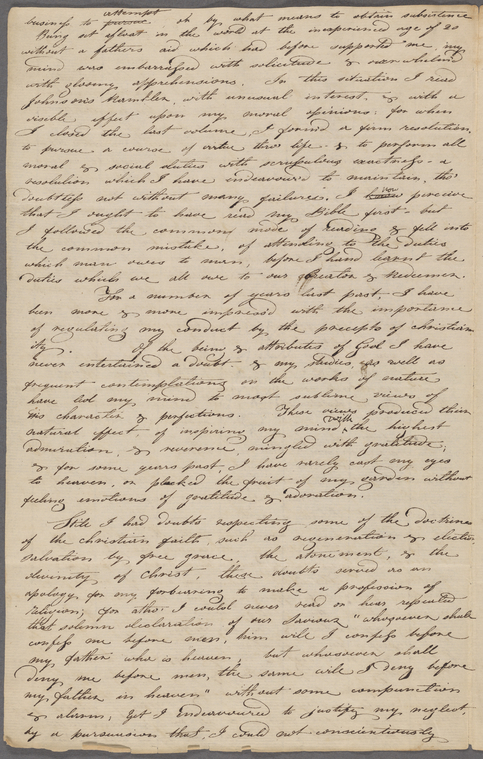 attempt
business to pursue or by what means to obtain subsistence
Being set afloat in the world at the inexperienced age of 20
without a fathers aid which had before supported me, my
mind was embarrassed with solicitude & overwhelmed
with gloomy apprehensions. In this situation I read
Johnson's Rambler, with unusual interest, & with a
visible effect upon my moral opinions: for when
I closed the last volume, I form'd a firm resolution
to pursue a course of virtue thro' life & to perform all
moral & social duties with scrupulous exactness - a
resolution which I have endeavour'd to maintain, tho'
doubtless not without many failures. I now percieve
that I ought to have read my Bible first - but
I followed the common mode of reading & fell into
the common mistake, of attending to the duties
which man owes to man, before I had learnt the
duties which we all owe to our Creator & Redeemer.
For a number of years last past, I have
been more & more impress'd with the importance
of regulating my conduct by the precepts of christian
ity. Of the being & attributes of God I have
never entertained a doubt - & my studies as well as
frequent contemplations on the works of nature
have led my mind to most sublime views of
His character & perfections. These views produced their
natural effect of inspiring my mind with the highest
admiration, & reverence mingled with gratitude;
& for some years past, I have rarely cast my eyes
to heaven, or plucked the fruit of my garden without
feeling emotions of gratitude & adoration.
Still I had doubts respecting some of the doctrines
of the christian faith, such as regeneration & election
salvation by free grace, the atonement, & the
divinity of Christ, these doubts served as an
apology, for my forbearing to make a profession of
religion; for altho' I could never read or hear repeated
that solemn declaration of our Saviour "whosoever shall
confess me before men, him will I confess before
my father who is heaven, but whosoever shall
deny me before men, the same will I deny before
my father in heaven" without some compunction
& alarm; yet I endeavoured to justify my neglect,
by a persuasion that I could not conscientiously